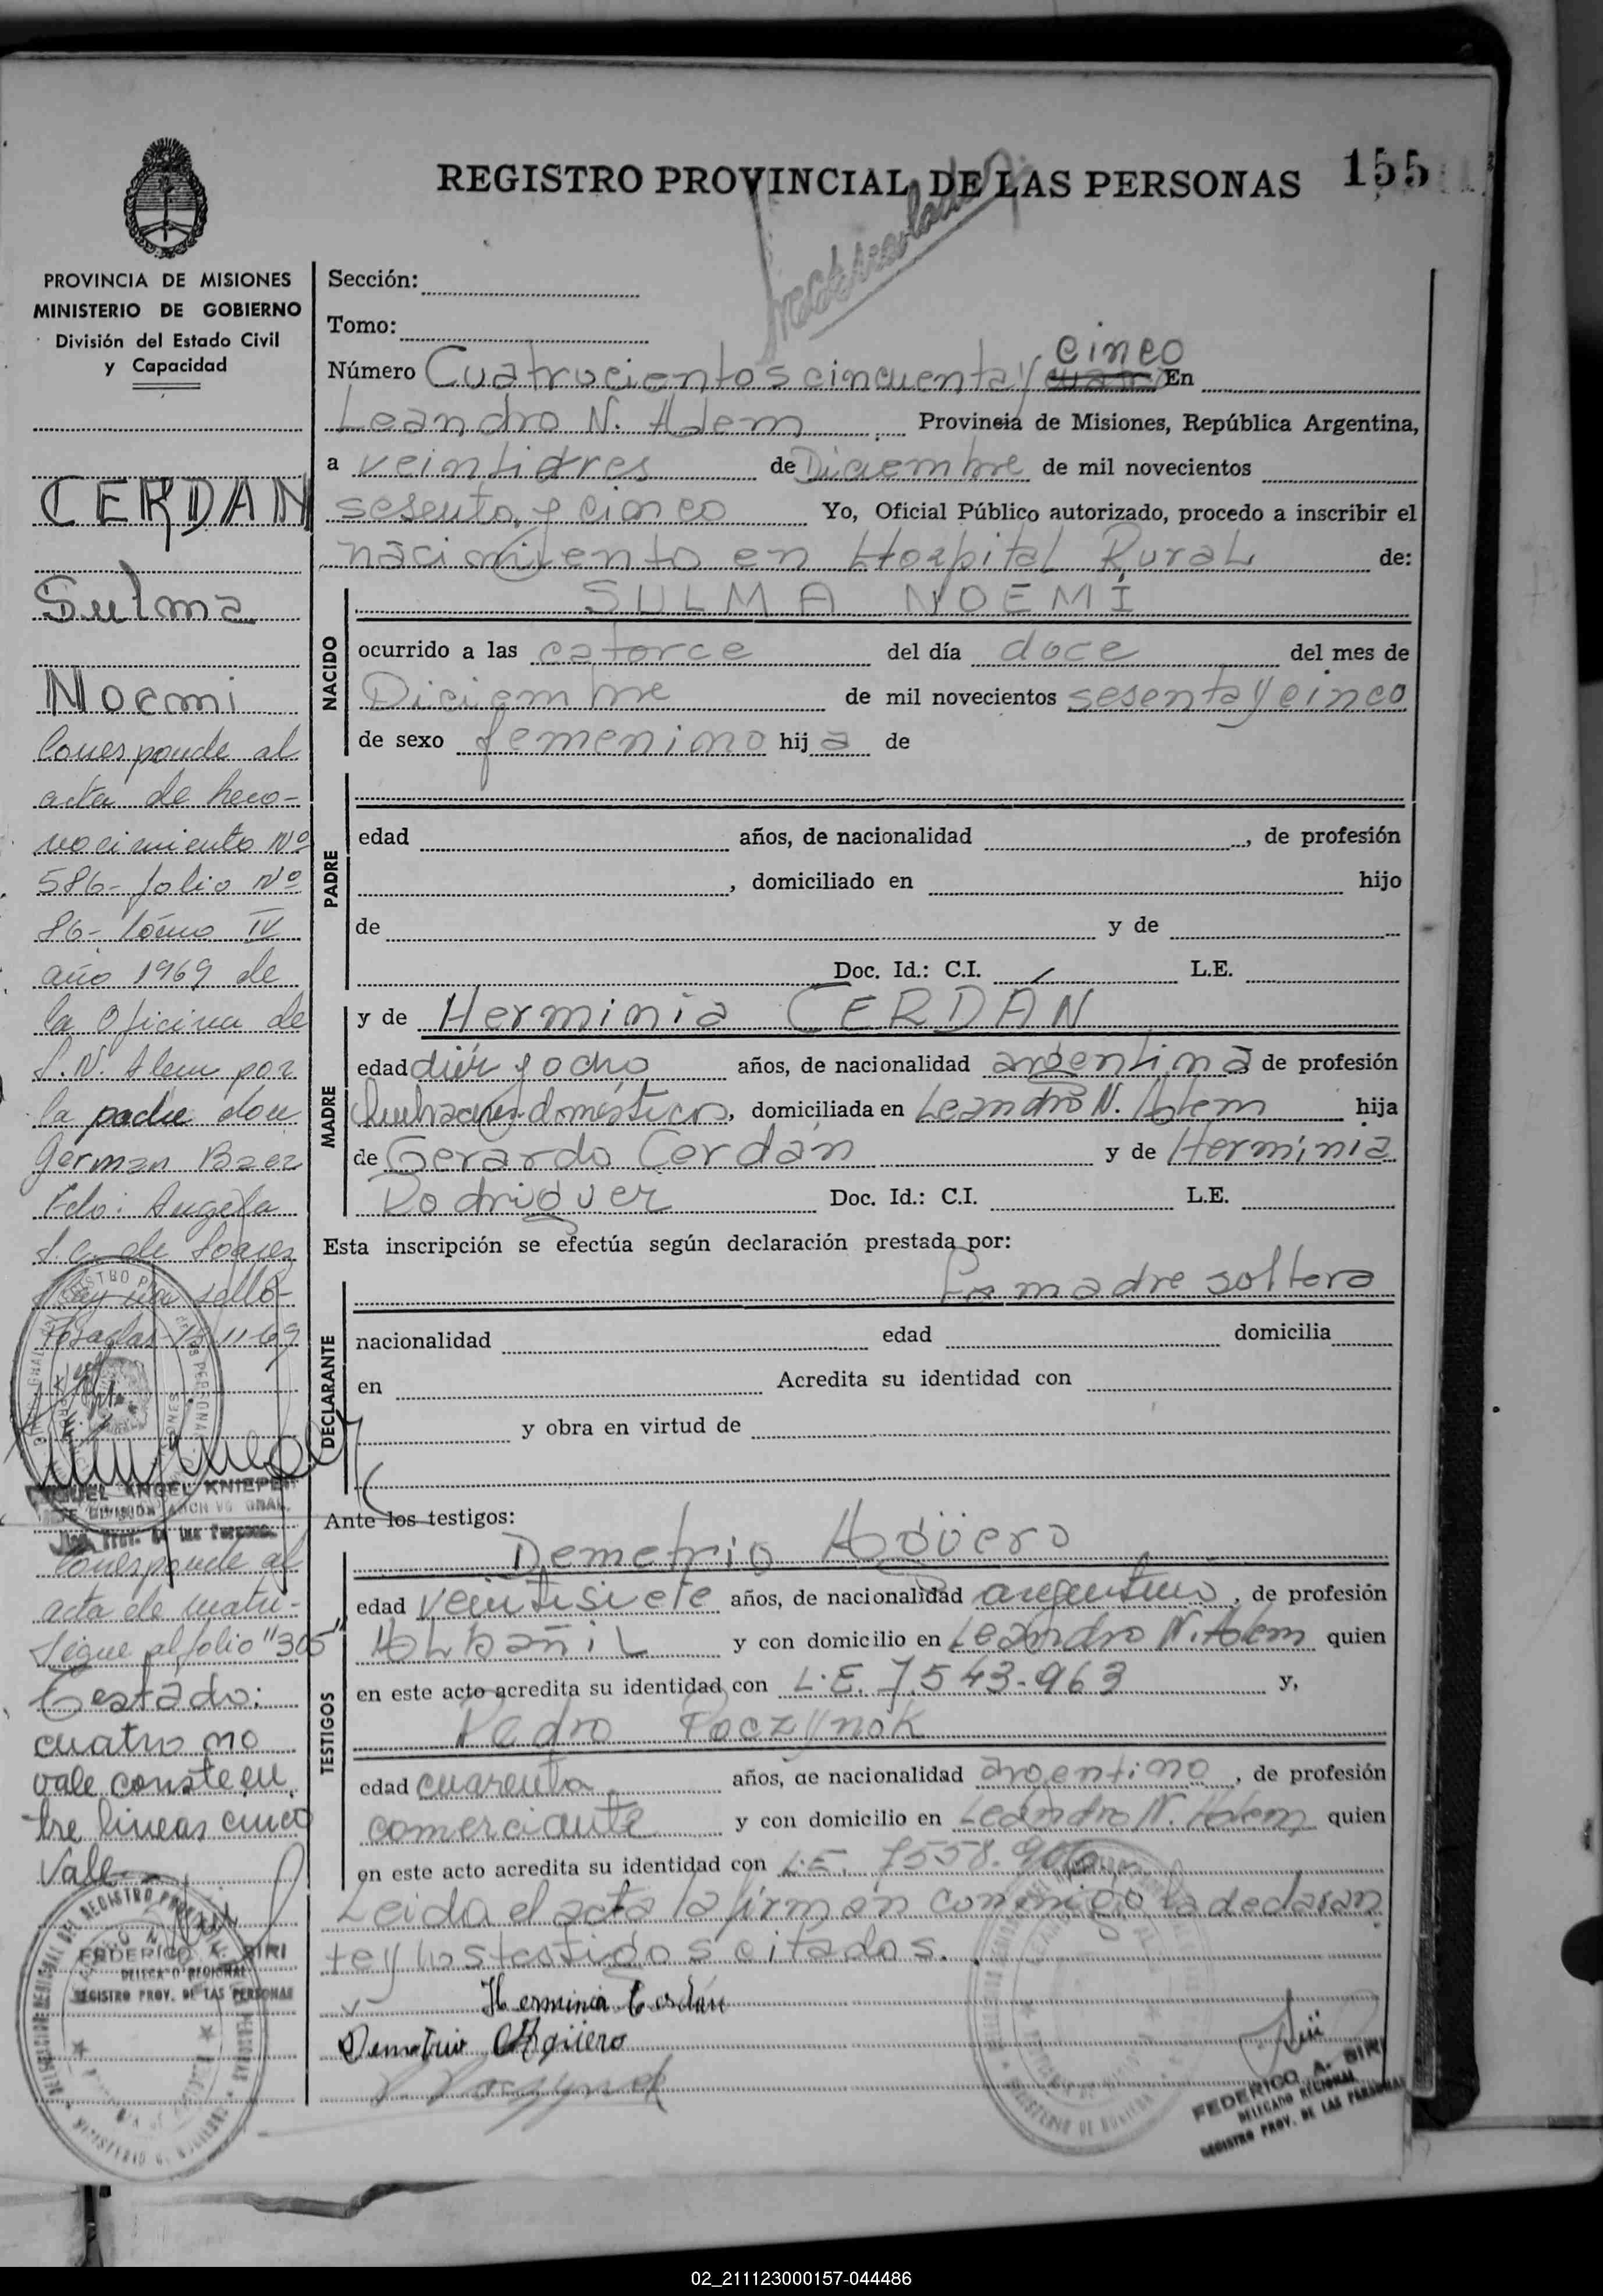 REGISTRO PROVINCIAL DE LAS PERSONAS 155
PROVINCIA DE MISIONES
MINISTERIO DE GOBIERNO
División del Estado Civil
y Capacidad
CERDAN
Sulma
Noemi
Corresponde al
acta de Reco-
nocimiento Nº
586- folio Nº
86- Tomo IV
año 1969 de
la Oficina de
L.N. Alem por
la padre don
German Baez
Fdo: Angela
de
Hay un sello-
Posadas 11-69
MIGUEL ANGEL KNIEPE
Corresponde al
acta de matri-
Sigue al folio "305"
Testado:
cuatro no
vale conste en
tre lineas cinco
Vale
FEDERICO A. SIRI
DELEGADO REGIONAL
REGISTRO PROV. DE LAS PERSONAS
Sección:
Tomo:
cinco
Número Cuatrocientos cincuenta y En
Leandro N. Alem Provincia de Misiones, República Argentina,
a veintidres de Diciembre de mil novecientos
sesenta y cinco Yo, Oficial Público autorizado, procedo a inscribir el
nacimiento en Hospital Rural de:
NACIDO
SULMA NOEMÍ
ocurrido a las catorce del día doce del mes de
Diciembre de mil novecientos sesenta y cinco
de sexo femenino hij a de
PADRE
edad años, de nacionalidad , de profesión
, domiciliado en hijo
de y de
Doc. Id.: C.I. L.E.
MADRE
y de Herminia CERDÁN
edad diez y ocho años, de nacionalidad argentina de profesión
Quehaceres domésticos, domiciliada en Leandro N. Alem hija
de Gerardo Cerdán y de Herminia
Rodriguez Doc. Id.: C.I. L.E.
Esta inscripción se efectúa según declaración prestada por:
DECLARANTE
La madre soltera
nacionalidad edad domicilia
en Acredita su identidad con
y obra en virtud de
Ante los testigos:
TESTIGOS
Demetrio Agüero
edad veintisiete años, de nacionalidad argentino, de profesión
Albañil y con domicilio en Leandro N. Alem quien
en este acto acredita su identidad con L.E. 7.543-963 y,
Pedro Poczynok
edad cuarenta años, de nacionalidad argentino, de profesión
comerciante y con domicilio en Leandro N. Alem quien
en este acto acredita su identidad con L.E. 7558.906
Leida el acta la firman conmigo la declaran
te y los testigos citados.
Herminia Cerdán
Demetrio Agüero
FEDERICO A. SIRI
DELEGADO REGIONAL
REGISTRO PROV. DE LAS PERSONAS
02_211123000157-044486